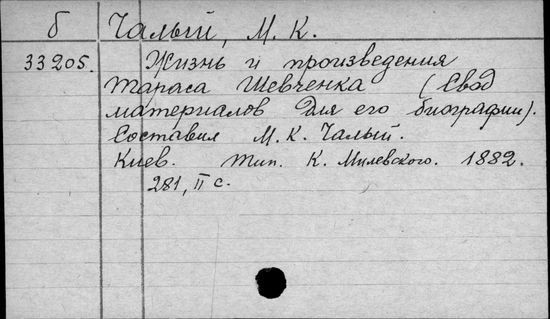 б Чалый, М. К.
33205. Жизнь и произведения
Тараса Шевченка (Свод
материалов для его биографии).
Составил М. К. Чалый.
Киев. Тип. К. Милевского. 1882.
281, II с.